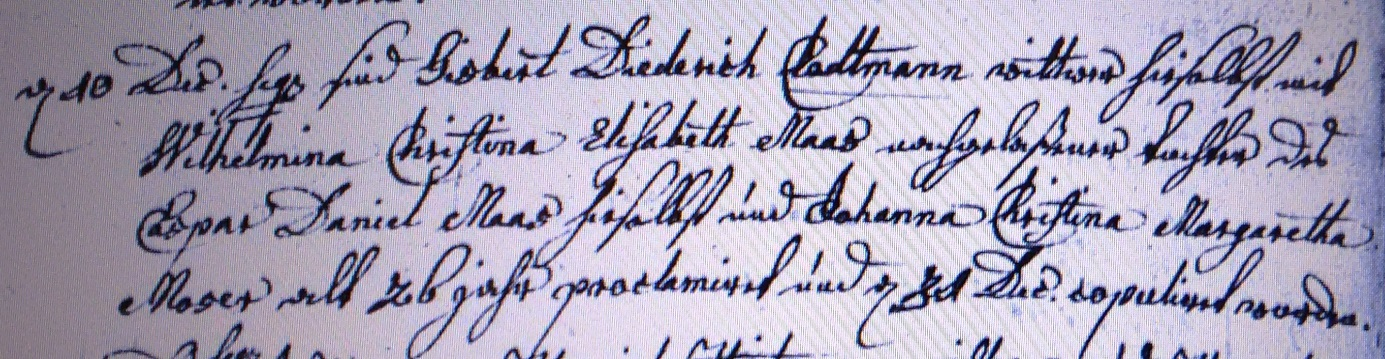 d 10 Dec. hujs sind Gisbert Diederich Stadtmann wittwer hieselbst mit
Wilhelmina Christina Elisabeth Maas nachgelaßener tochter des
Caspar Daniel Maas hieselbst und Johanna Christina Margaretha
Moser alt 26 jahr proclamirt und d 31 Dec. copulirt worden.